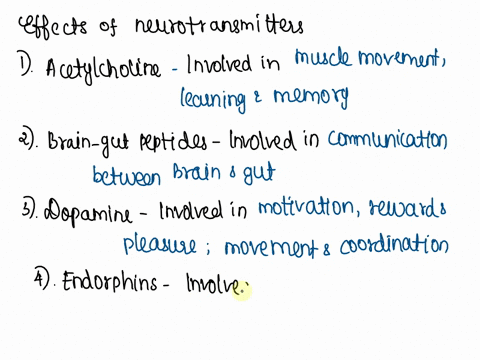 effects of neurotransmitters
1). Acetylcholine - Involved in muscle movement,
learning & memory
2). Brain-gut peptides - Involved in communication
between Brain & gut
3). Dopamine - Involved in motivation, reward &
pleasure ; movement & coordination
4). Endorphins - Involve